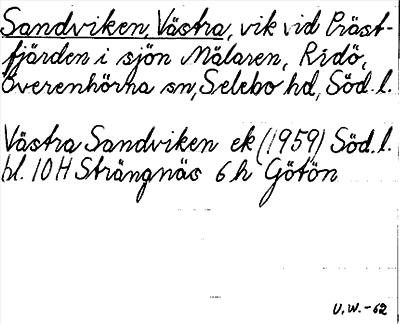 Sandviken, Västra, vik vid Präst-
fjärden i sjön Mälaren, Ridö,
Överenhörna sn, Selebo hd, Söd. l.
Västra Sandviken ek (1959) Söd. l.
bl. 10 H Strängnäs 6 h Götön
U.W. -62